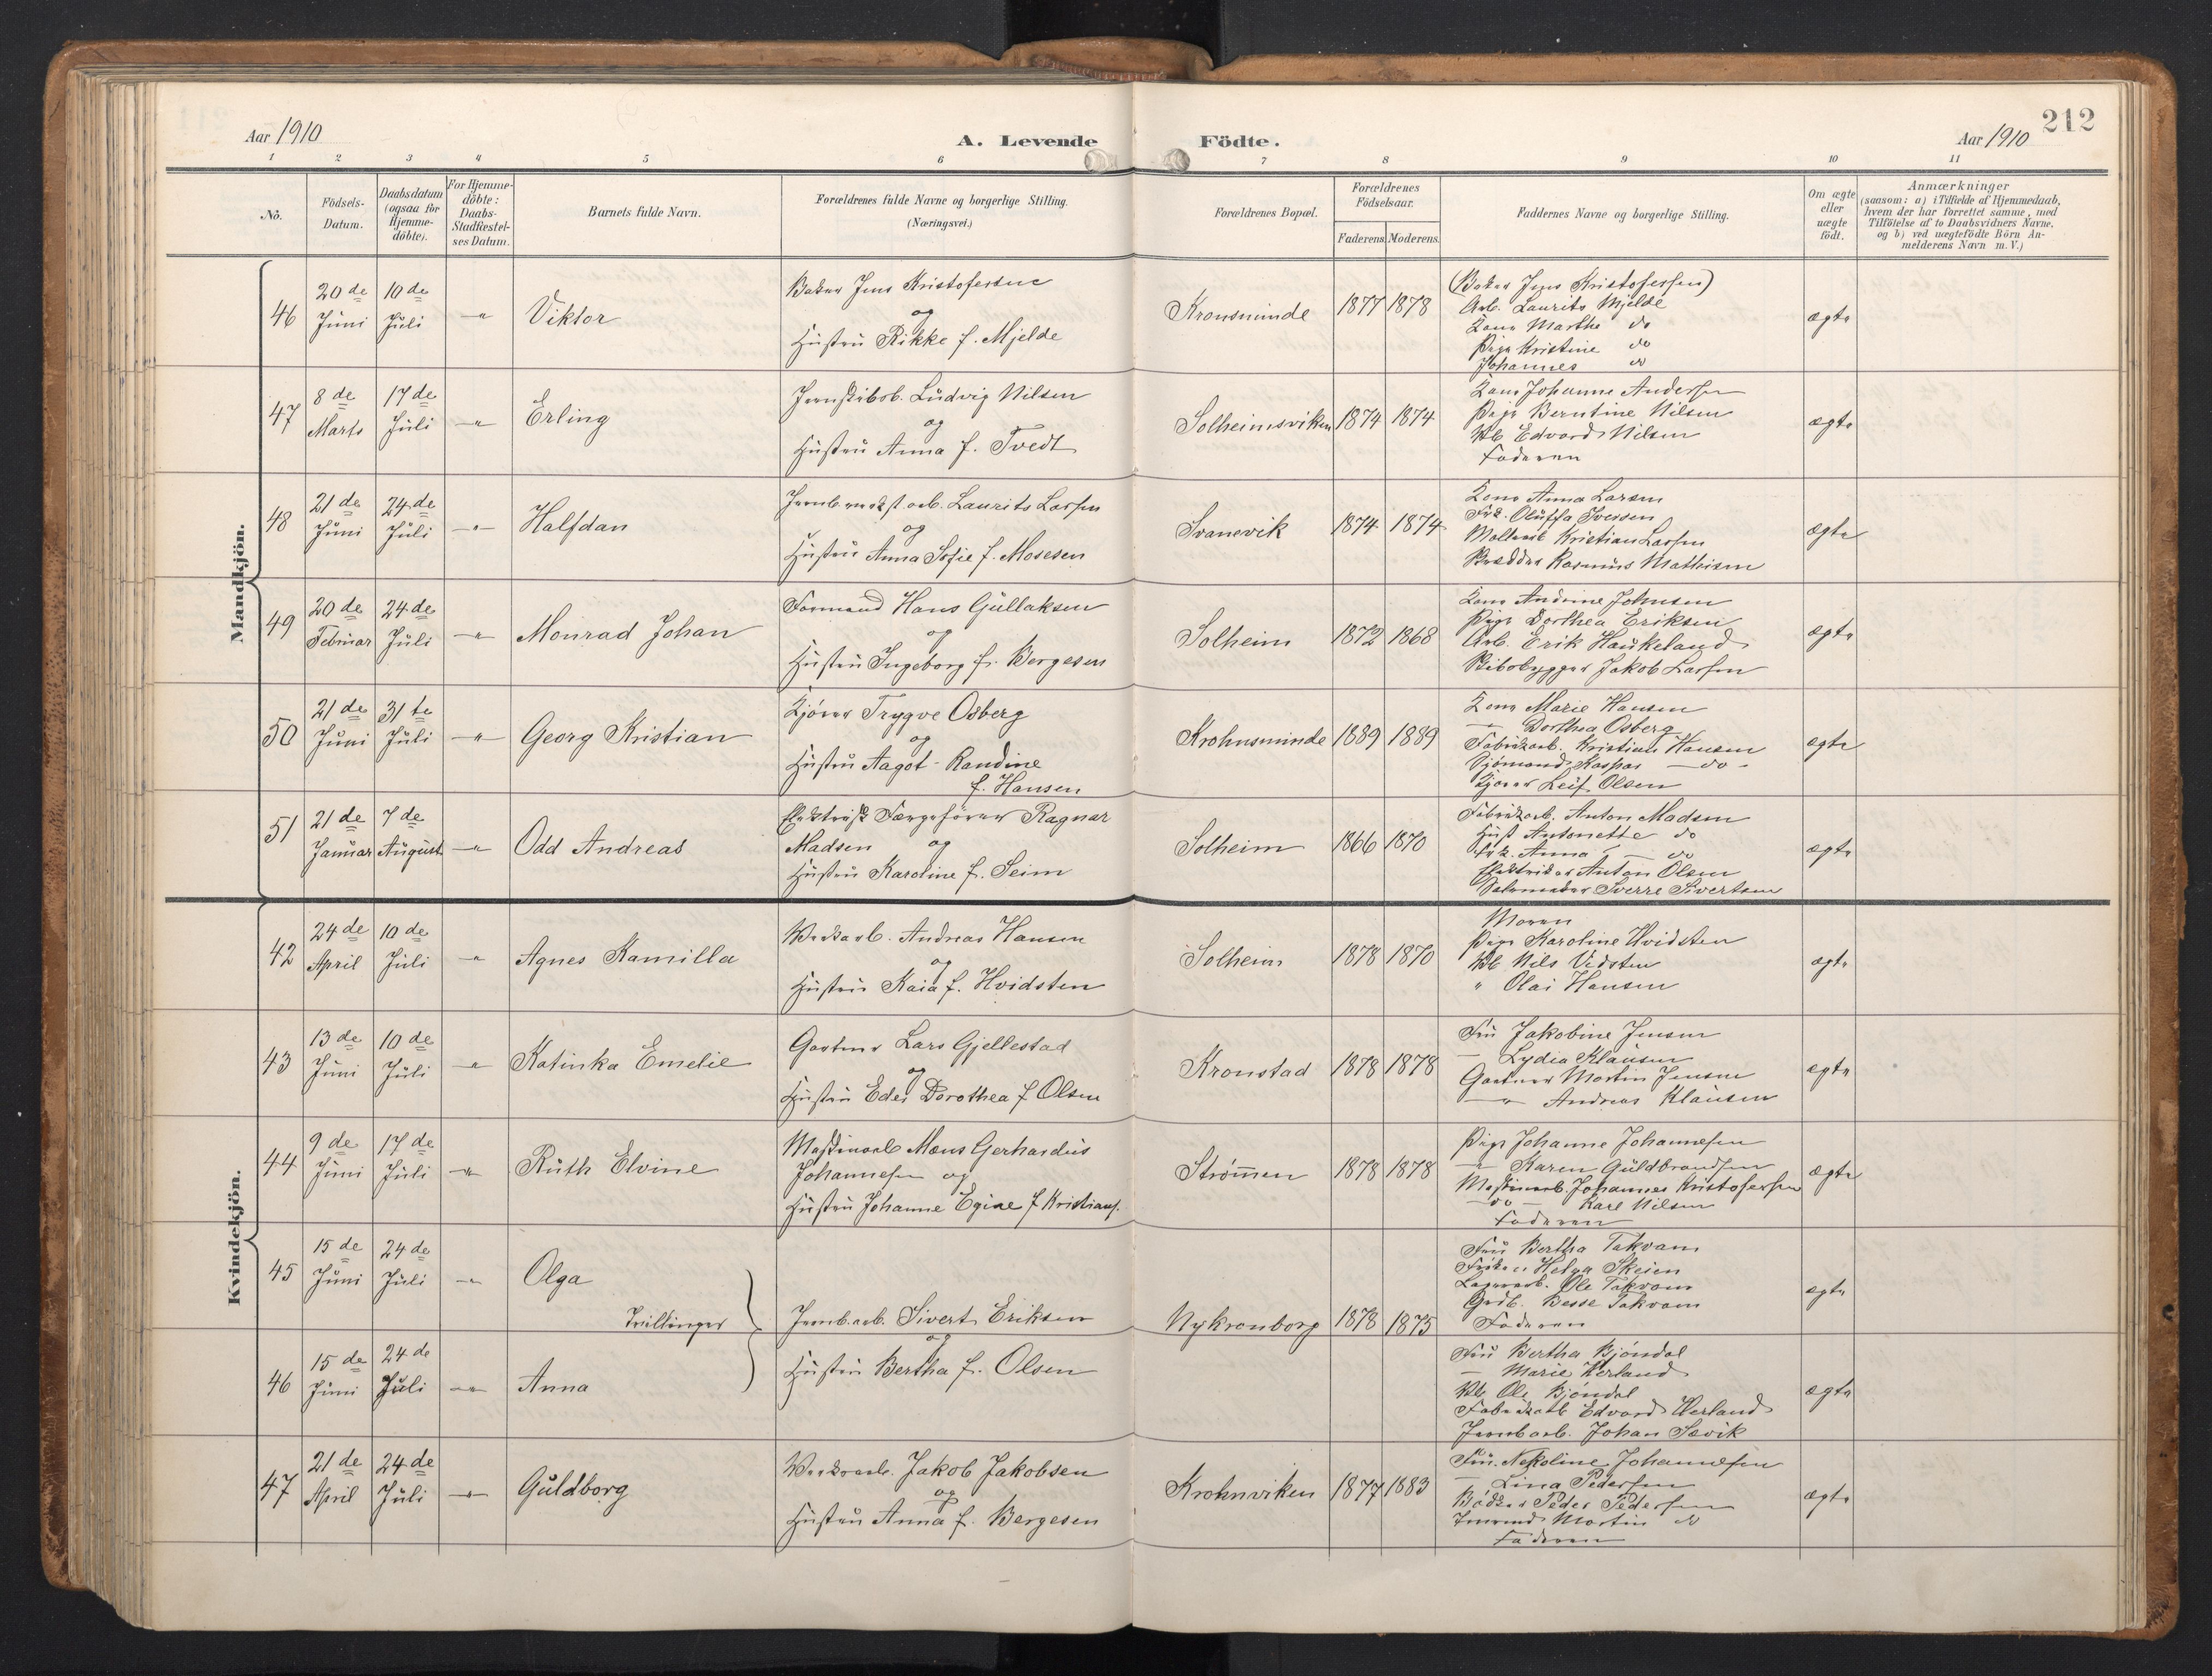 212
Aar 1910 A. Levende Födte. Aar 1910
1 2 3 4 5 6 7 8 9 10 11
No. Födsels-Datum. Daabsdatum (ogsaa for Hjemme-döbte). For Hjemme-döbte: Daabs-Stadfæstel-ses Datum. Barnets fulde Navn. Forældrenes fulde Navne og borgerlige Stilling. (Næringsvei.) Forældrenes Bopæl. Forældrenes Födselsaar. Faderens Moderens. Faddernes Navne og borgerlige Stilling. Om ægte eller uægte födt. Anmærkninger (saasom: a) i Tilfælde af Hjemmedaab, hvem der har forrettet samme, med Tilföielse af to Daabsvidners Navne, og b) ved uægtefödte Börn An-melderens Navn m. V.)
Mandkjön.
46 20de Juni 10de Juli -"- Viktor
Baker Jens Kristofersen
og
Hustru Rikke f. Mjelde
Kronsminde 1877 1878
(Baker Jens Kristofersen)
Arb. Laurits Mjelde
Kone Marthe do
Pige Kristine do
Johannes do
ægte
47 8de Marts 17de Juli -"- Erling
Jernskibsb. Ludvig Nilsen
og
Hustru Anna f. Tvedt
Solheimsviken 1874 1874
Kone Johanne Andersen
Pige Berntine Nilsen
Uk Edvard Nilsen
Faderen
ægte
48 21de Juni 24de Juli -"- Halfdan
Jernb verkst. arb. Laurits Larsen
og
Hustru Anna Sofie f. Mosesen
Svanevik 1874 1874
Kone Anna Larsen
Frk. Oluffa Iversen
Kristian Larsen
Rasmus Mathisen
ægte
49 20de Februar 24de Juli -"- Monrad Johan
Formand Hans Gullaksen
og
Hustru Ingeborg f. Bergesen
Solheim 1872 1868
Kone Andrine Johnsen
Pige Dorthea Eriksen
Arb. Erik Haukeland
Skibsbygger Jakob Larsen
ægte
50 21de Juni 31te Juli -"- Georg Kristian
Kjører Trygve Osberg
og
Hustru Aagot Randine
f. Hansen
Krohnsminde 1889 1889
Kone Marie Hansen
— Dorthea Osberg
Fabrikarb. Kristian Hansen
Sjömand Kaspar — do -
Kjører Leif Olsen
ægte
51 21de Januar 7de August -"- Odd Andreas
Elektrisk Færgefører Ragnar
Madsen og
Hustru Karoline f. Seim
Solheim 1866 1870
Fabrikarb. Anton Madsen
Hust Antonette do
Frk. Anna — do
Elektriker Anton Olsen
Salemaker Sverre Sivertsen
ægte
Kvindekjön.
42 24de April 10de Juli -"- Agnes Kamilla
Verksarb. Andreas Hansen
og
Hustru Kaia f. Hvidsten
Solheim 1878 1870
Moren
Pige Karoline Hvidsten
Uk Nils Vidsten
" Olai Hansen
ægte
43 13de Juni 10de Juli -"- Katinka Emelie
Gartner Lars Gjellestad
og
Hustru Edes Dorothea f Olsen
Kronstad 1878 1878
Fru Jakobine Jensen
— Lydia Klausen
Gartner Martin Jensen
—"— Andreas Klausen
ægte
44 9de Juni 17de Juli -"- Ruth Elvine
Maskinarb Mons Gerhardus
Johannesen og
Hustru Johanne Egine f Kristians.
Strømmen 1878 1878
Pige Johanne Johannesen
—"— Karen Guldbrandsen
Maskinarb. Johannes Kristofersen
— do — Karl Nilsen
Faderen
ægte
45 15de Juni 24de Juli -"- Olga
Fru Bertha Takvam
Frøken Helga Skeien
Lagerarb. Ole Takvam
Grdb. Besse Takvam
Faderen
ægte
Tvillinger
Jernb.arb. Sivert Eriksen
og
Hustru Bertha f. Olsen
Nykronborg 1878 1875
46 15de Juni 24de Juli -"- Anna
Fru Bertha Bjöndal
— Marie Herland
Uk. Ole Bjöndal
Fabrikarb Edvard Herland
Jernbarb. Johan Sævik
ægte
47 21de April 24de Juli -"- Guldborg
Verksarb. Jakob Jakobsen
og
Hustru Anna f. Bergesen
Krohnviken 1877 1883
Fru. Nekoline Johannesen
— Lina Pedersen
Bödker Peder Pedersen
Martin do
Faderen
ægte